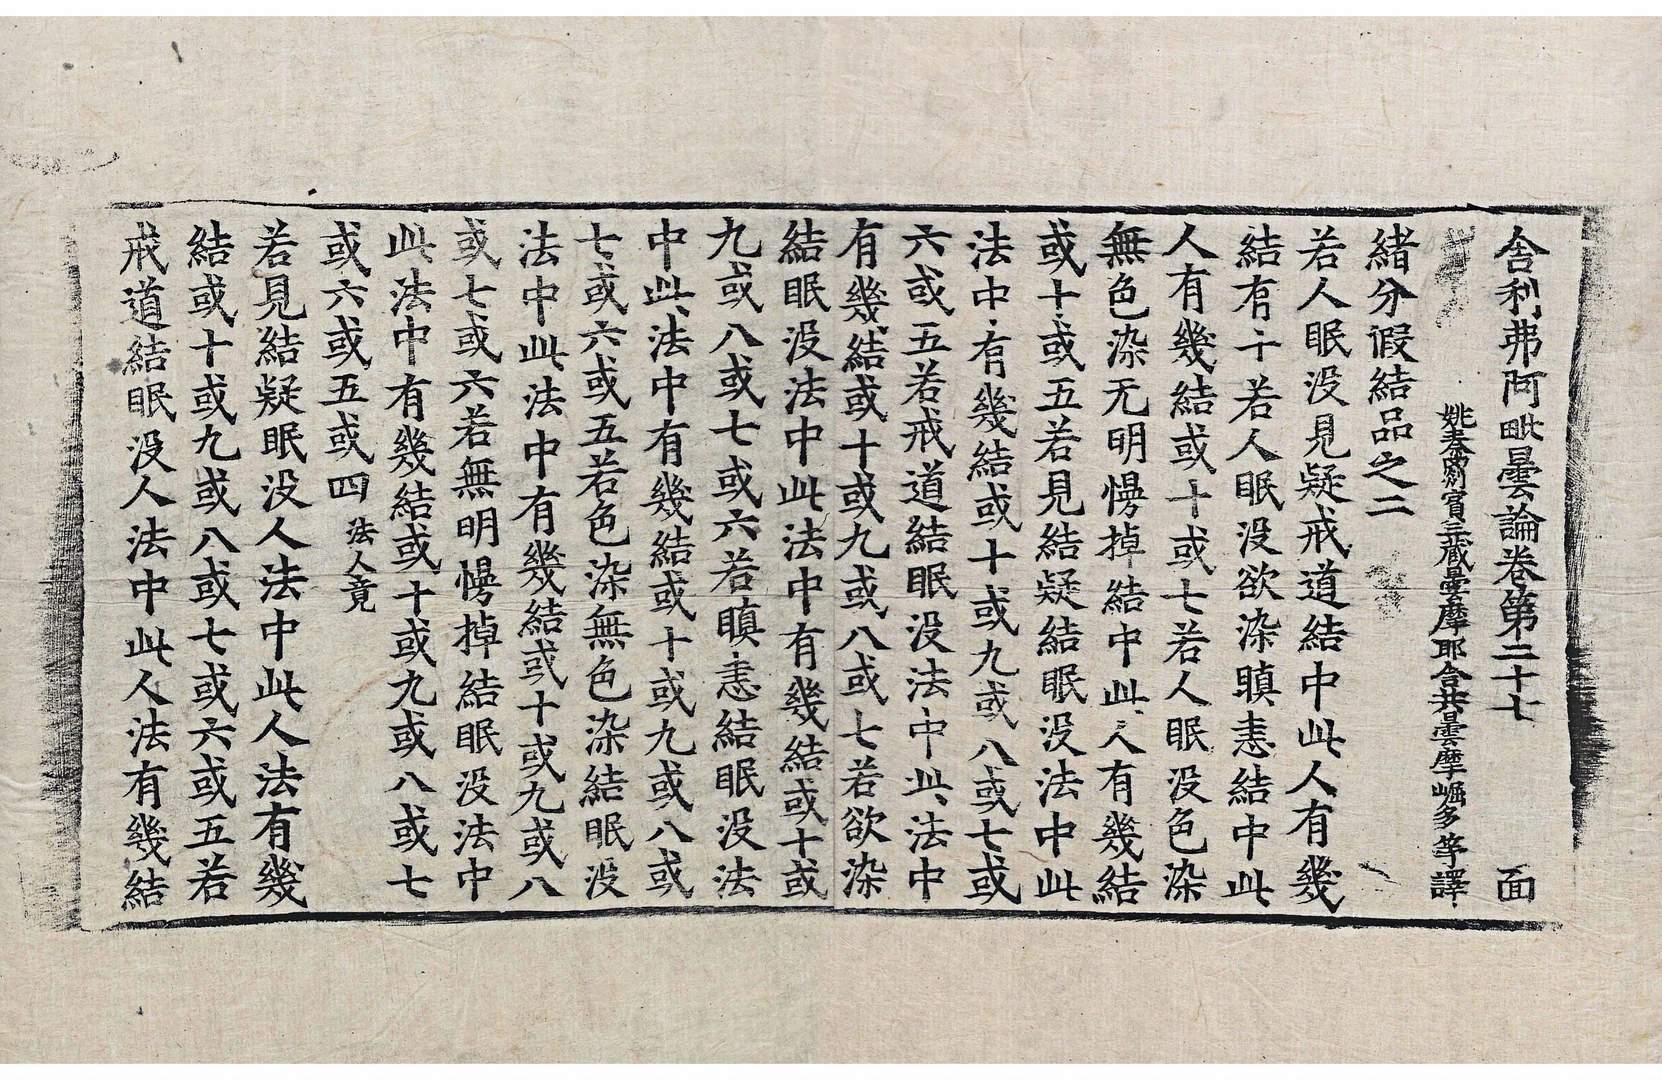 舍利弗阿毗曇論卷第二十七 面
姚秦罽賓三藏曇摩耶舍共曇摩崛多等譯
緒分假結品之二
若人眠没見疑戒道結中此人有幾
結有十若人眠没欲染瞋恚結中此
人有幾結或十或七若人眠没色染
無色染无明慢掉結中此人有幾結
或十或五若見結疑結眠没法中此
法中有幾結或十或九或八或七或
六或五若戒道結眠没法中此法中
有幾結或十或九或八或七若欲染
結眠没法中此法中有幾結或十或
九或八或七或六若瞋恚結眠没法
中此法中有幾結或十或九或八或
七或六或五若色染無色染結眠没
法中此法中有幾結或十或九或八
或七或六若無明慢掉結眠没法中
此法中有幾結或十或九或八或七
或六或五或四 法人竟
若見結疑眠没人法中此人法有幾
結或十或九或八或七或六或五若
戒道結眠没人法中此人法有幾結